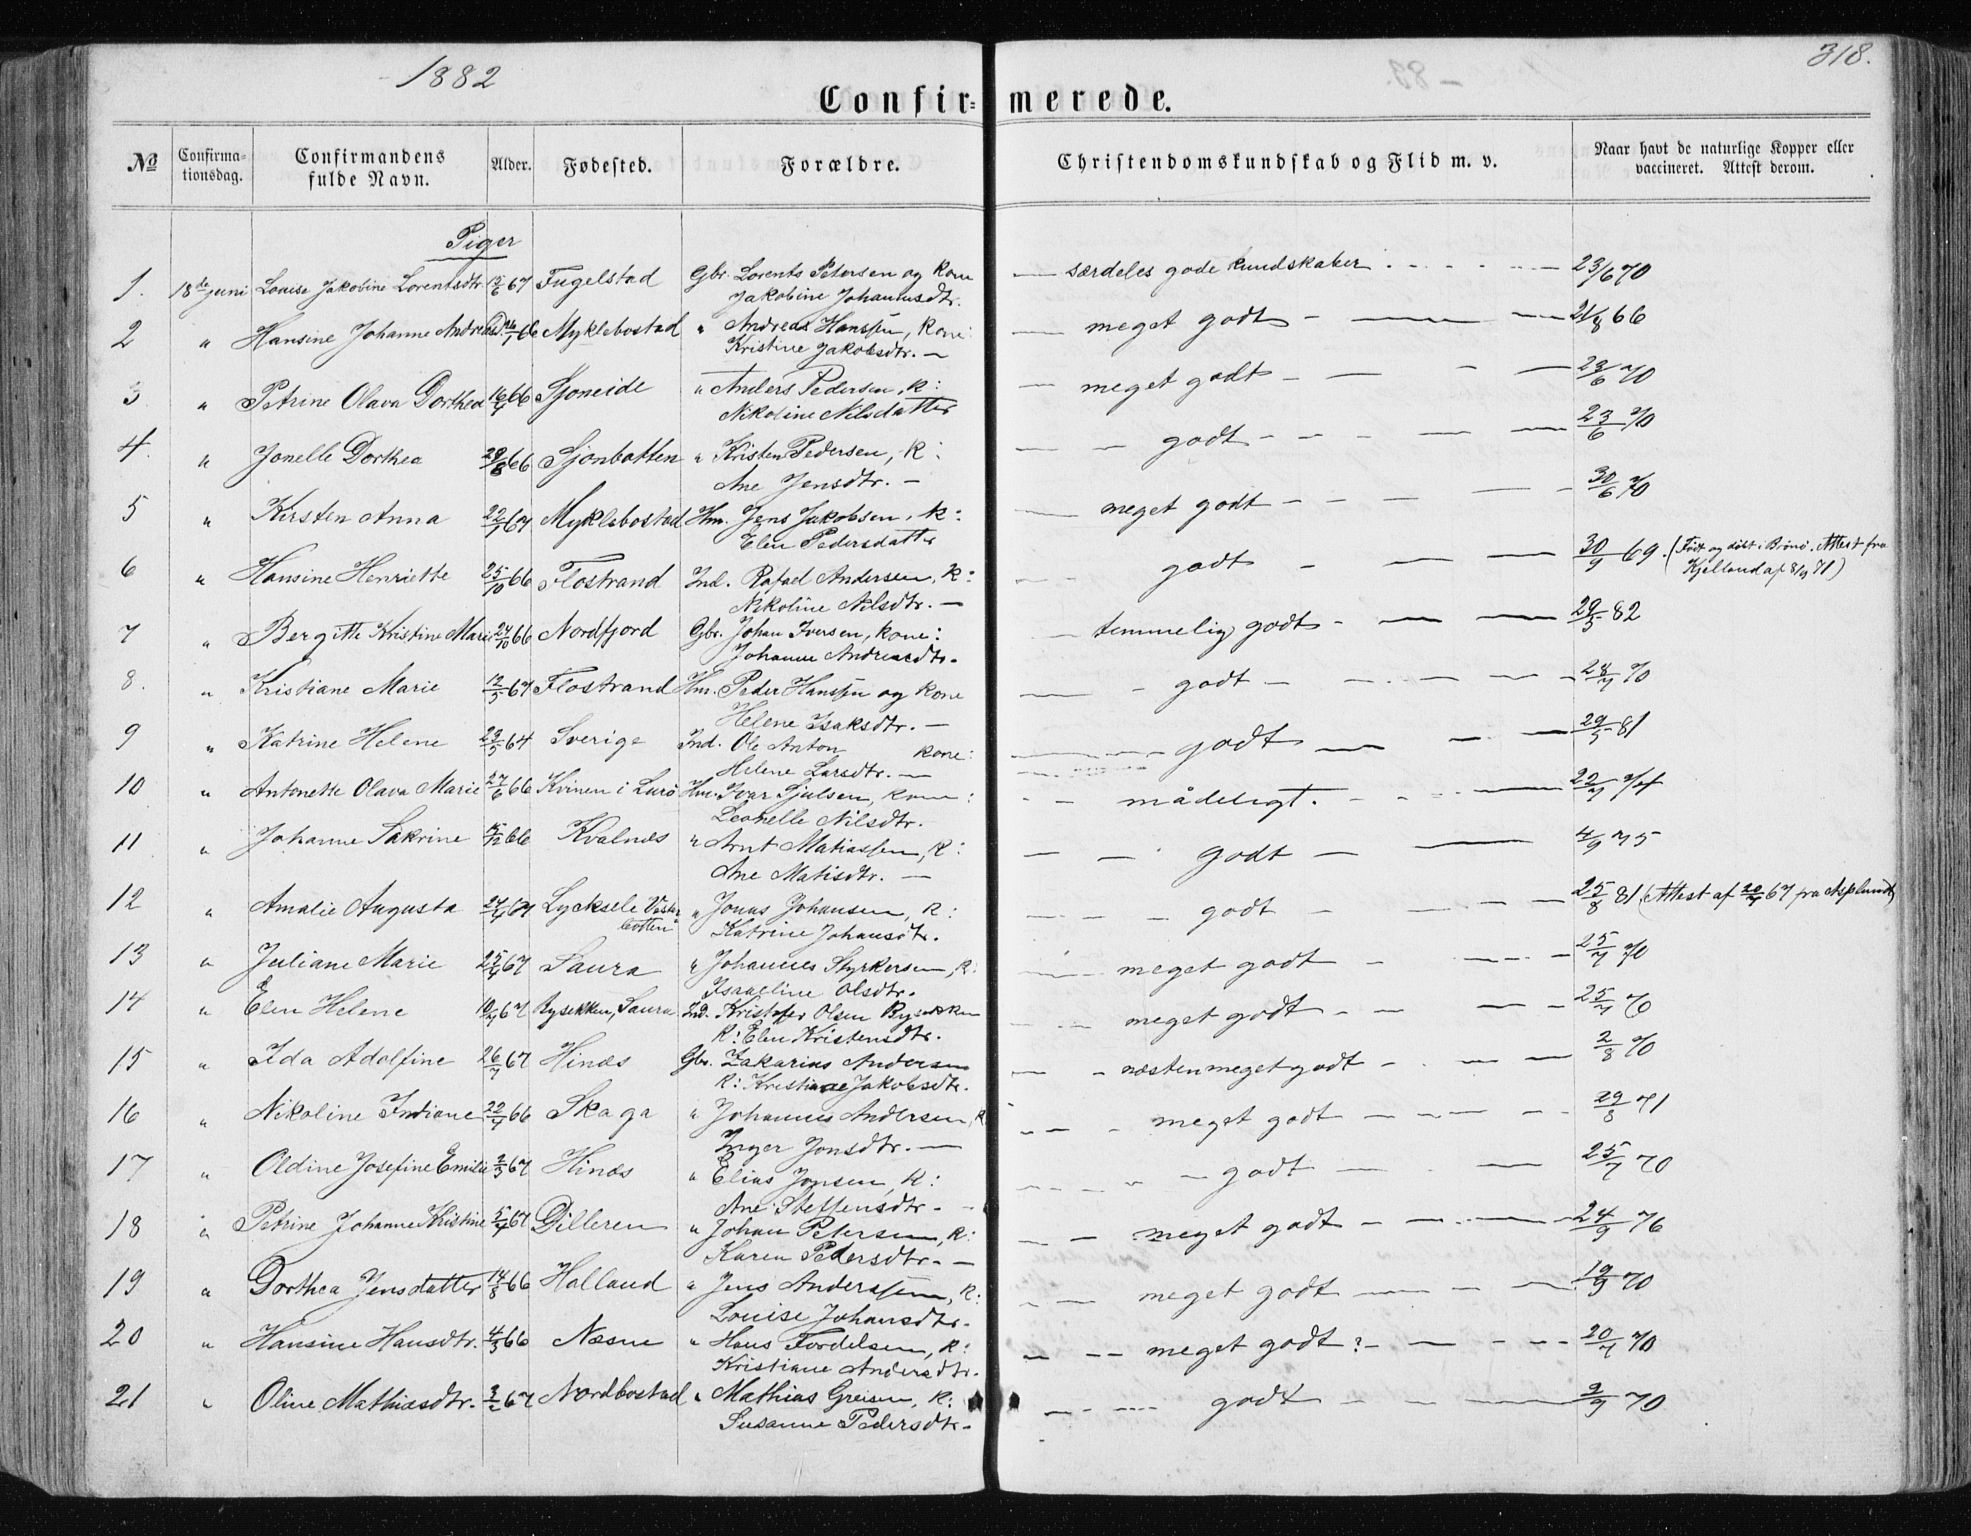 1882
318.
Confir= merede.
No
Confirma=
tionsdag.
Confirmandens
fulde Navn.
Alder.
Fødested.
Forældre.
Christendomskundskab og Flid m. v.
Naar havt de naturlige Kopper eller
vaccineret. Attest derom.
Piger
1. 18de juni Louise Jakobine Lorentsdtr. 67 Fugelstad Gbr. Lorents Petersen og Kone særdeles gode kundskaber 23/6 70
Jakobine Johannesdtr.
2 " Hansine Johanne 66 Myklebostad " Andreas Hanssen, Kone: meget godt 66
Kristine Jakobsdtr.
3 " Petrine Olava Dorthea 66 Sjoneide " Anders Pedersen, K: meget godt 23/6 70
Nikoline Nilsdatter
4. " Jonelle Dorthea 29/8 66 Sjonbotten " Kristen Pedersen, K: godt 23/6 70
Ane Jensdtr.
5 " Kirsten Anna 22/1 67 Myklebostad Hm. Jens Jakobsen, K: meget godt 30/6 70
Elen Pedersdatter
6 " Hansine Henriette 25/10 66 Flostrand Ind. Rafael Andersen, K: godt 30/9 69. (Født og døbt i Brønø. Attest fra
Kjelland af 8/9 71)
Nikoline Nilsdtr.
7 " Bergitte Kristine Marie 24/10 66 Nordfjord Gbr. Johan Iversen, Kone: temmelig godt 29/5 82
Johanne Andreasdtr.
8. " Kristiane Marie 12/5 67 Flostrand Hm. Peder Hanssen og Kone godt 28/7 70
Helene Isaksdtr.
9 " Katrine Helene 29/5 64 Sverige Ind. Ole Anton Kone: godt 29/5 81
Helene Larsdtr.
10 " Antonette Olava Marie 27/6 66 Kvinen i Lurø Hm. Ivar Sjulsen, Kone: mådeligt. 22/7
Leonelle Nilsdtr.
11 " Johanne Sakrine 66 Kvalnæs " Arnt Matiassen, K: godt 4/9 75
Ane Matisdtr.
12 " Amalie Augusta 67 Lycksele Väster " Jonas Johansen, K: godt 25/8 81 (Attest af 67 fra Asplund)
botten
Katrine Johansdtr.
13 " Juliane Marie 25/4 67 Saura " Johannes Styrkersen, K: meget godt 25/7 70
Isaaeline Olsdtr.
14 " Elen Helene 67 Bysekken, Saura Ind. Kristofer Olsen meget godt 25/7 70
K: Elen Kristensdtr.
15 " Ida Adolfine 26/7 67 Hinæs Gbr. Zakarias Andersen næsten meget godt 2/8 70
K: Kristiane Jakobsdtr.
16 " Nikoline Indiane 22/4 66 Skaga " Johannes Andersen, K meget godt 29/8 71
Inger Jonsdtr.
17 " Oldine Josefine Emilie 2/3 67 Hinæs " Elias Jonsen, K: godt 25/7 70
Ane Steffensdtr.
18 " Petrine Johanne Kristine 5/4 67 Dilleren " Johan Petersen, K: meget godt 24/9 76
Karen Pedersdtr.
19 " Dorthea Jensdatter 14/8 66 Halland " Jens Anderssen, K: meget godt 19/9 70
Louise Johansdtr.
20 " Hansine Hansdtr. 4/3 66 Næsne " Hans Fordelsen, K: meget godt? 20/7 70
Kristiane Andersdtr.
21 " Oline Mathiasdtr. 67 Nordbostad " Mathias Greisen, K: godt 2/9 70
Susanne Pedersdtr.